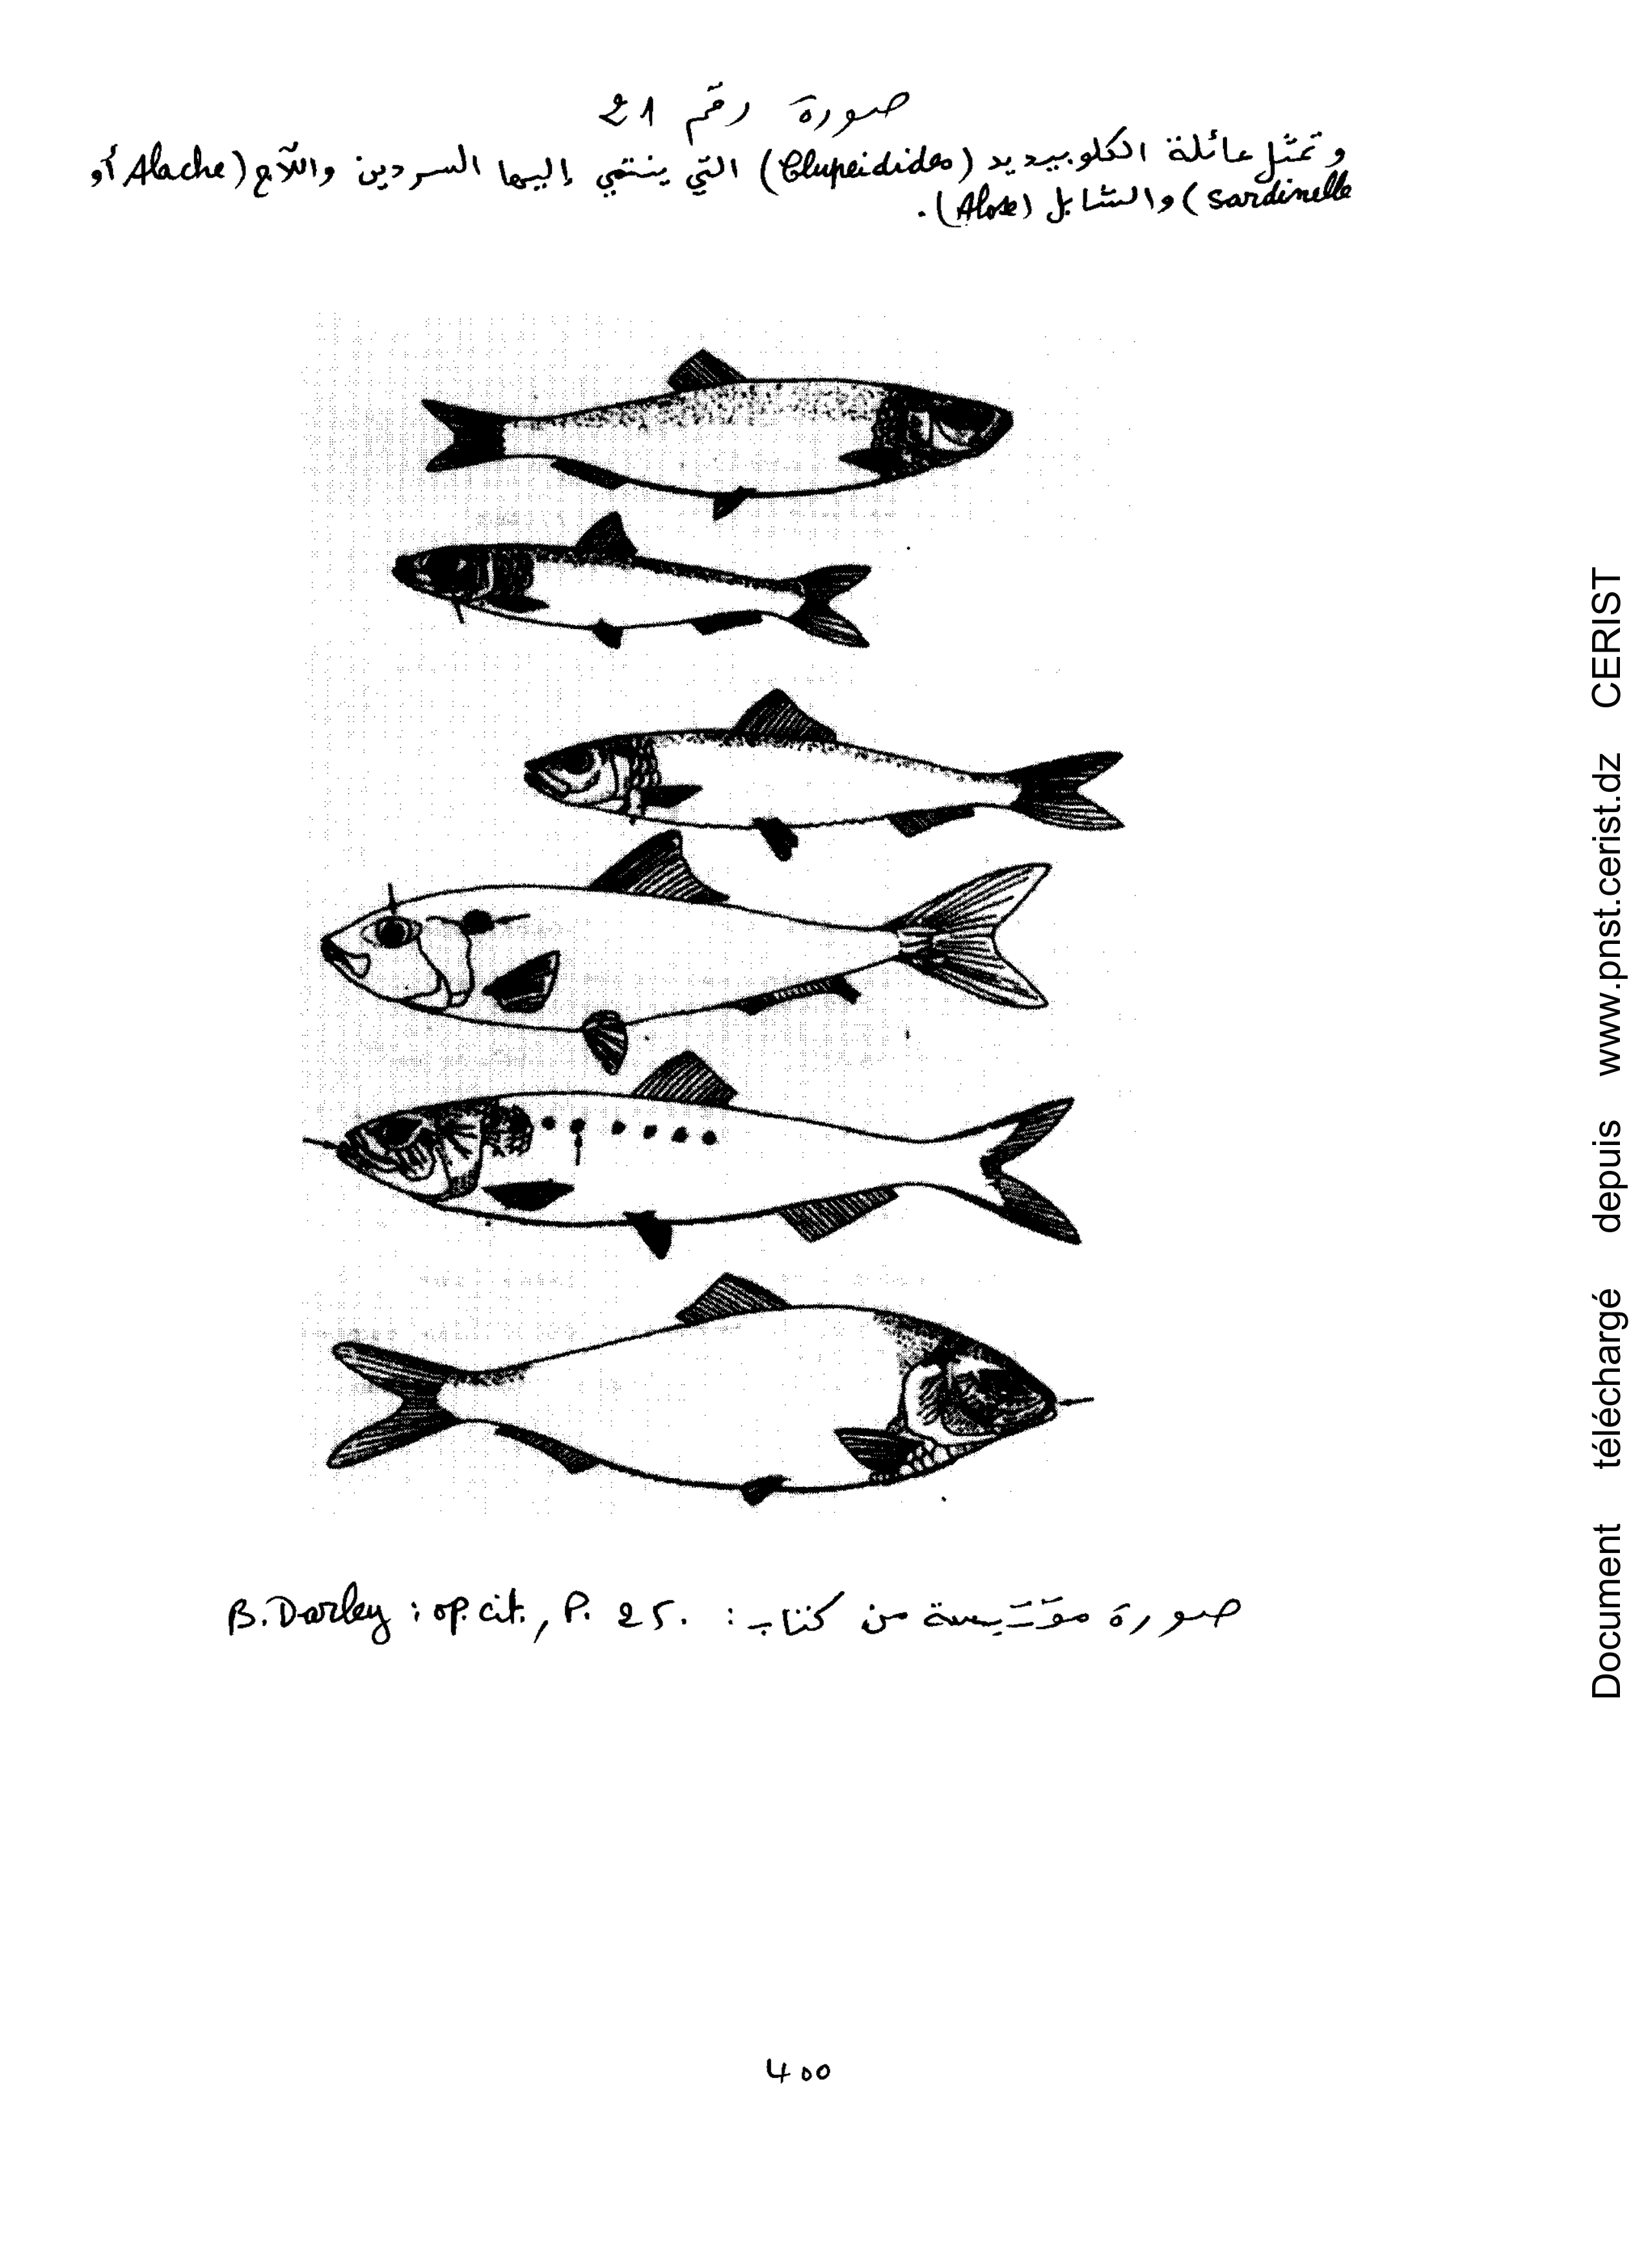 صورة رقم 21
و تمثل عائلة الكلوبيديد (Clupeidides) التي ينتمي إليها السردين واللآج (Alache أو
Sardinelle) والشابل (Alose).
صورة مقتبسة من كتاب: B. Darley : op. cit., P. 25.
400
Document téléchargé depuis www.pnst.cerist.dz CERIST